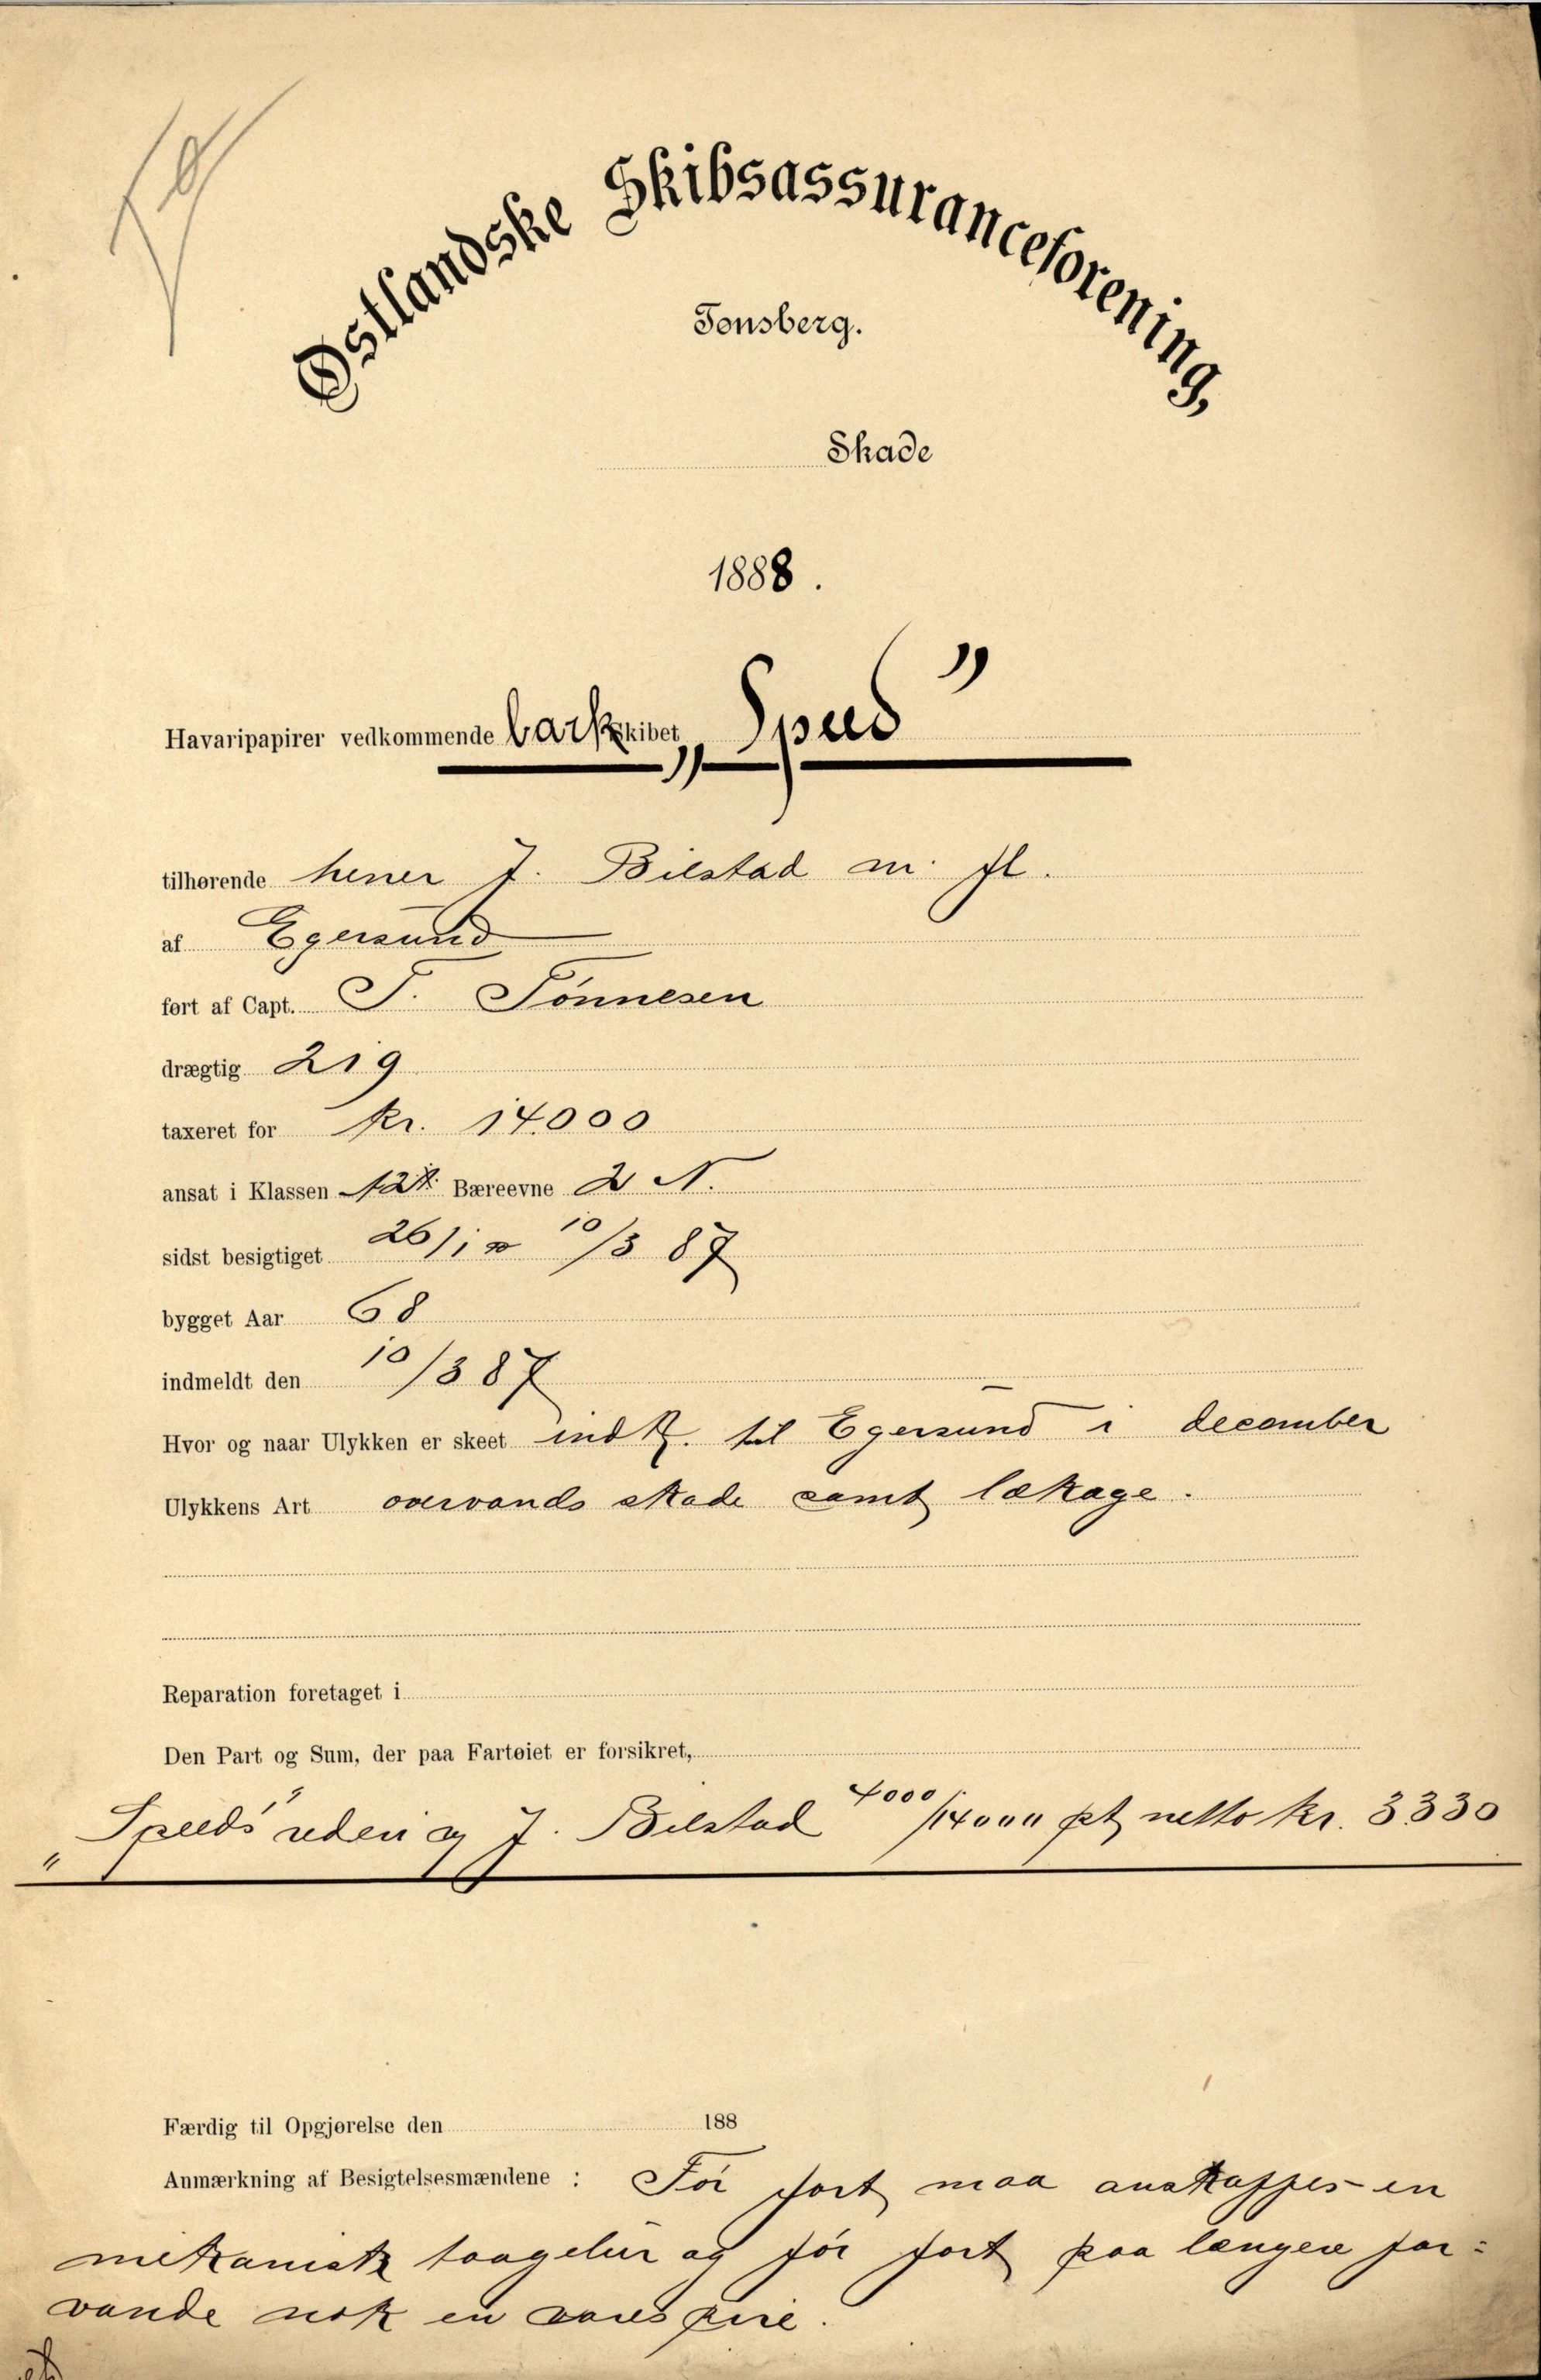 Østlandske Skibsassuranceforening,
Tønsberg.
Skade
1888.
Havaripapirer vedkommende barkskibet „Speed”
tilhørende herrer J. Bilstad m. fl.
af Egersund
ført af Capt. T. Tönnesen
drægtig 219
taxeret for kr. 14.000
ansat i Klassen Bæreevne 2 N.
sidst besigtiget 26/1 10/3 87
bygget Aar 68
indmeldt den 10/3 87
Hvor og naar Ulykken er skeet indk. til Egersund i december
Ulykkens Art overvands skade samt lækage.
Reparation foretaget i
Den Part og Sum, der paa Fartøiet er forsikret,
„Speeds” rederi og J. Bilstad 4000/14000 pt netto kr. 3.330
Færdig til Opgjørelse den 188
Anmærkning af Besigtelsesmændene : För fart maa anskaffes en
mekanisk taagelur og för fart paa længere far=
vande nok en